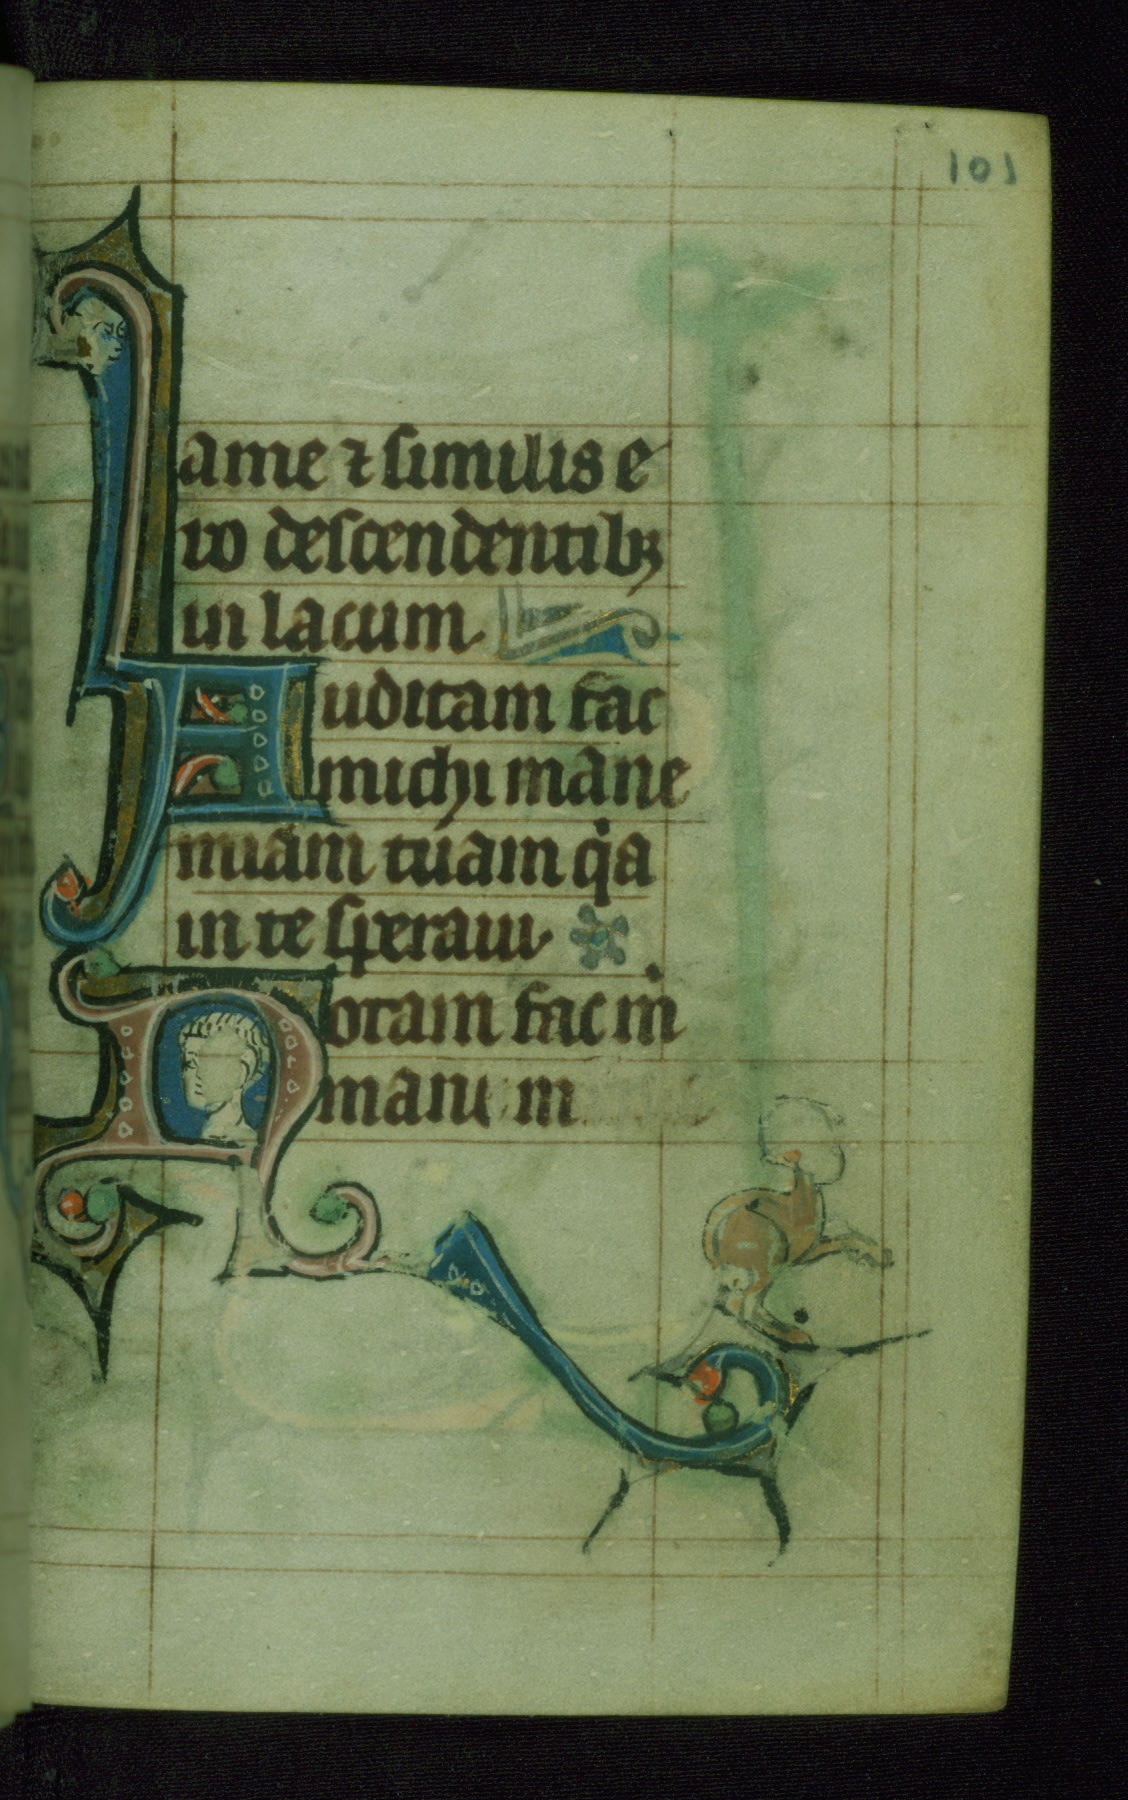 101
a me ⁊ similis e
ro descendentibꝫ
in lacum
Auditam fac
michi mane
miam tuam q̇a
in te speraui
Notam fac ṁ